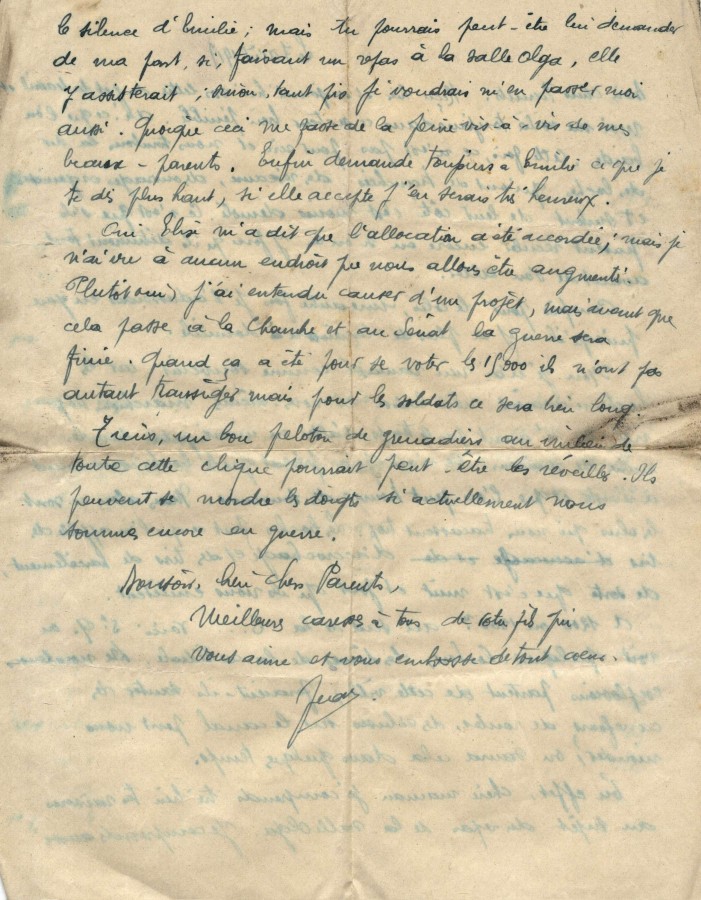 le silence d'Emilie ; mais tu pourrais peut-être lui demander
de ma part, si, faisant un repas à la salle Olga, elle
y assisterait ; sinon, tant pis je voudrais m'en passer moi
aussi. Quoique ceci me fasse de la peine vis-à-vis de mes
beaux-parents. Enfin demande toujours à Emilie ce que je
te dis plus haut, si elle accepte j'en serais très heureux.
Oui Elise m'a dit que l'allocation a été accordée ; mais je
n'ai vu à aucun endroit que nous allons être augmenté.
Plutôt oui, j'ai entendu causer d'un projet, mais avant que
cela passe à la Chambre et au Sénat la guerre sera
finie. Quand ça a été pour se voter les 15000 ils n'ont pas
autant mais pour les soldats ce sera bien long.
Tiens, un bon peloton de grenadiers au milieu de
toute cette clique pourrait peut-être les réveiller. Ils
peuvent se mordre les doigts si actuellement nous
sommes encore en guerre.
Bonsoir, bien chers Parents,
Meilleures caresses à tous de votre fils qui
vous aime et vous embrasse de tout coeur.